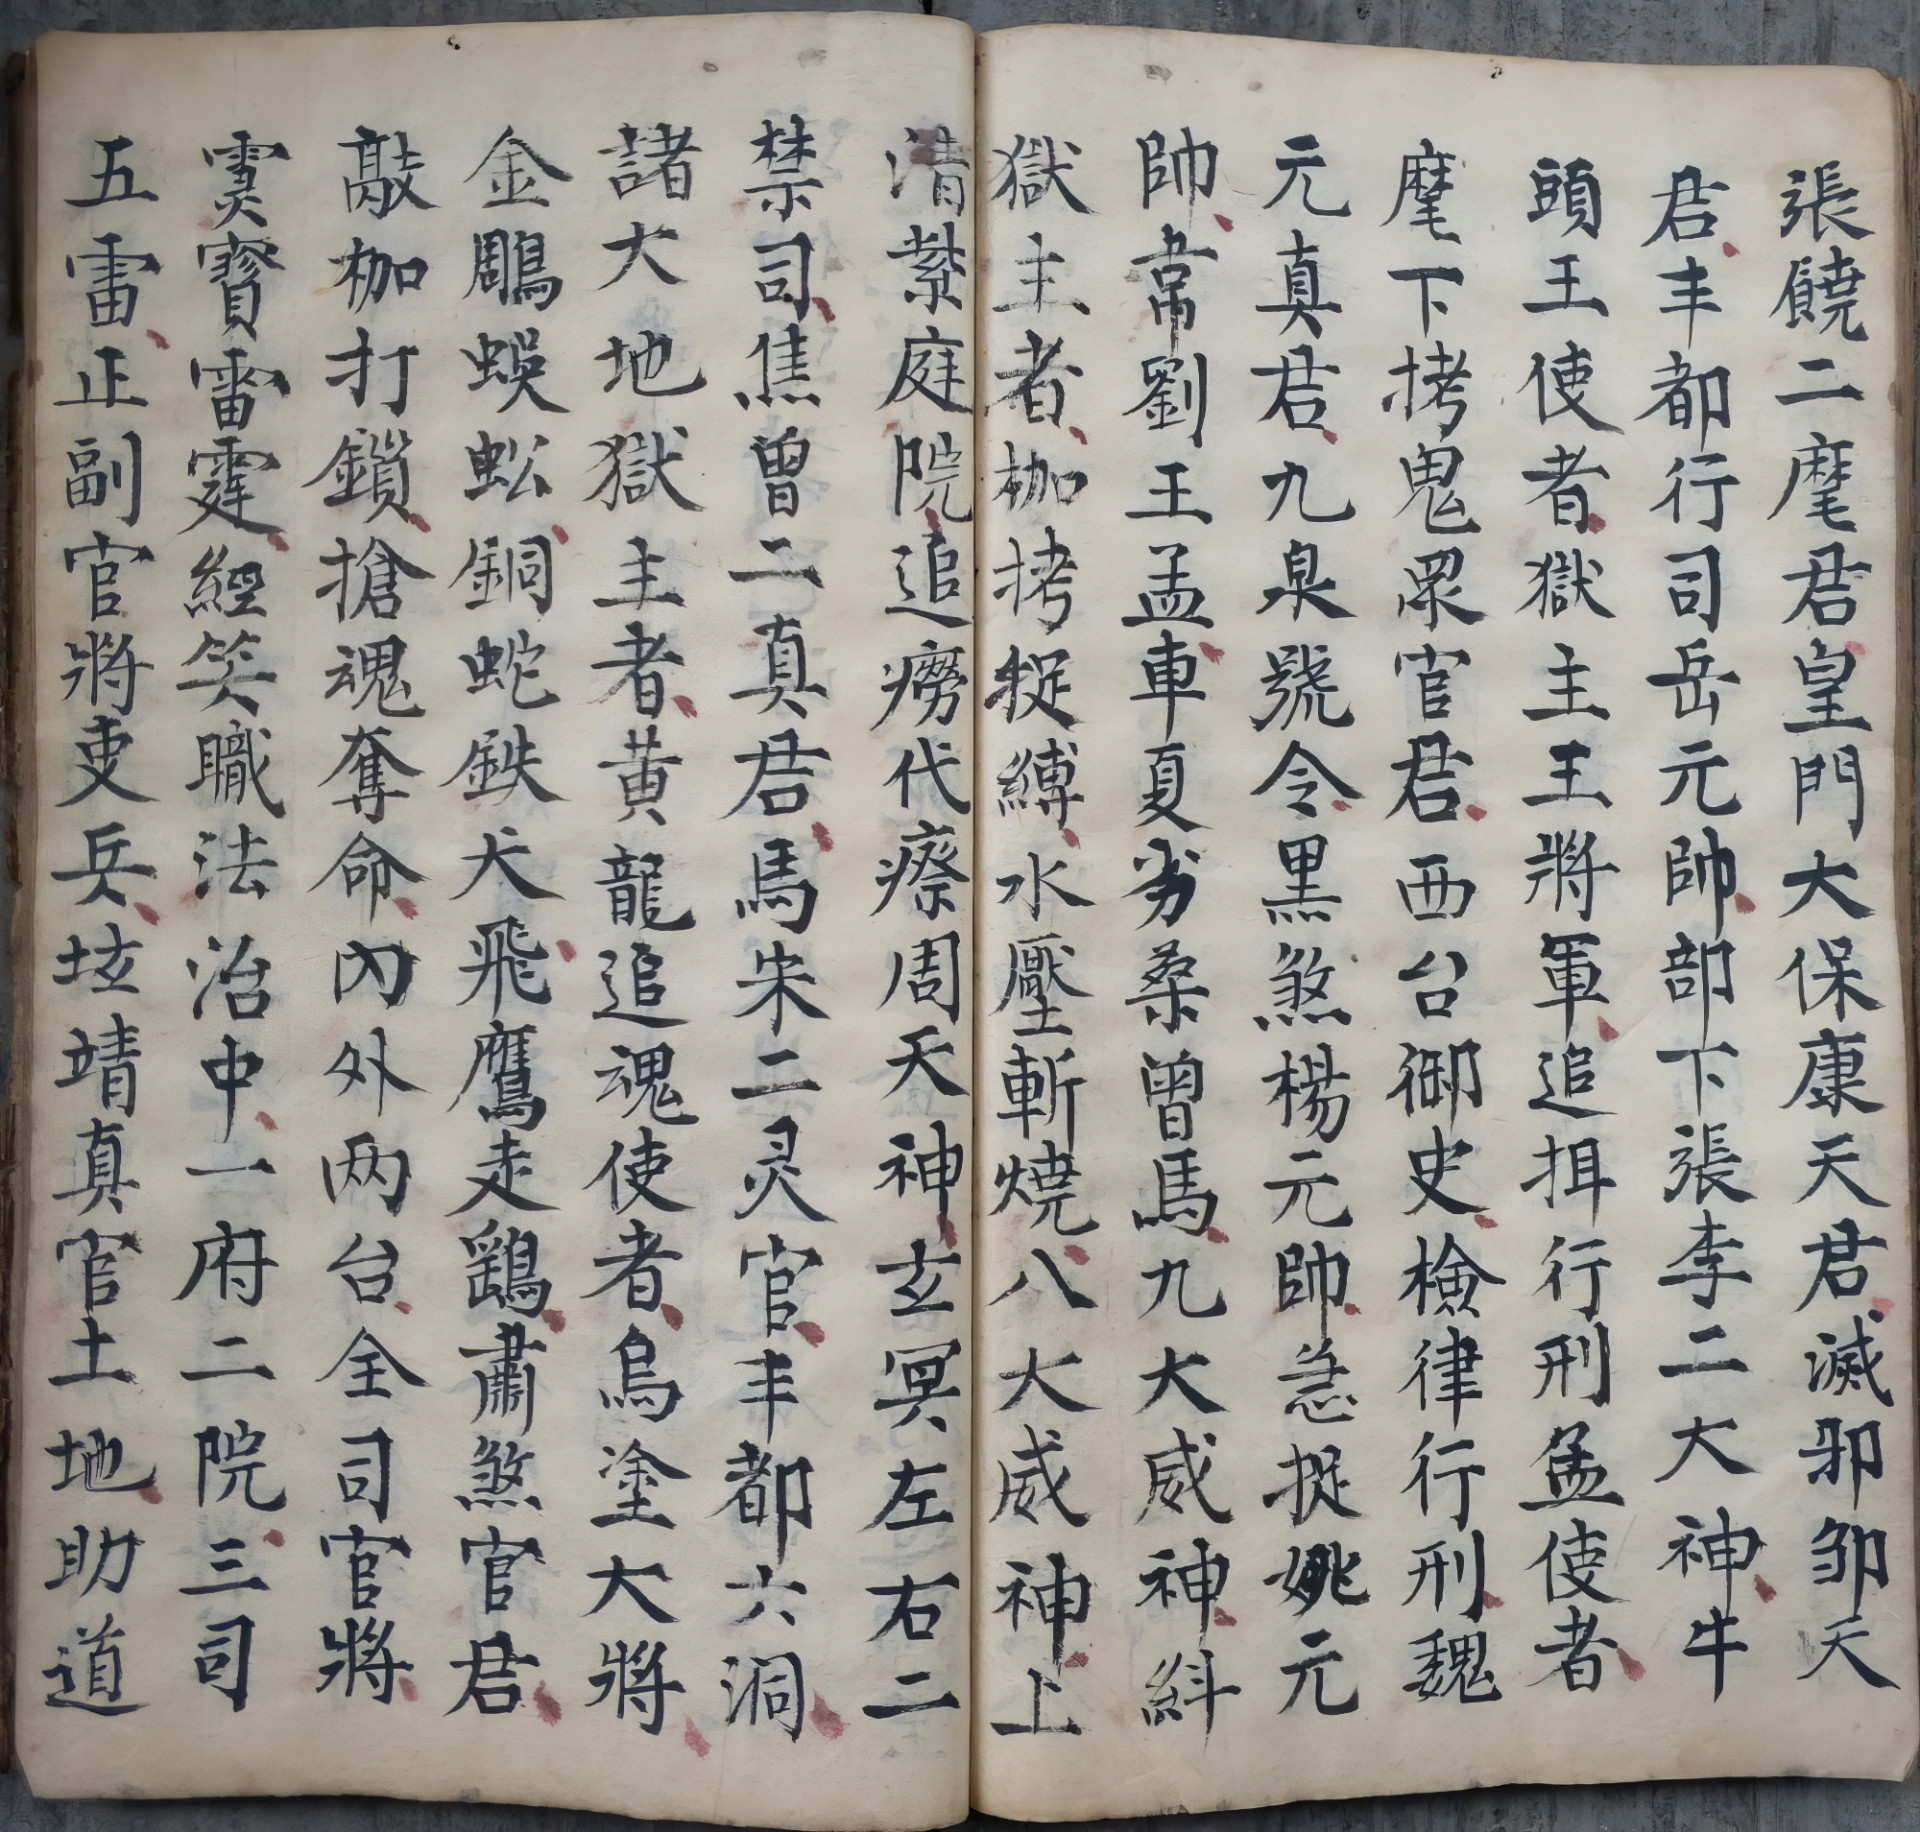 張饒二麾君皇門大保康天君滅邪邹天
君丰都行司岳元帥部下張李二大神牛
頭王使者獄主王將軍追揖行刑孟使者
麾下拷鬼眾官君西台御史檢律行刑魏
元真君九泉號令黑煞楊元帥急捉姚元
帥常劉王孟車夏桑曾馬九大威神糾
獄主者枷拷捉縛水壓斬燒八大威神上
清紫庭院追癆代瘵周天神玄冥左右二
禁司焦曾二真君馬宋二灵官丰都六洞
諸大地獄主者黄龍追魂使者烏塗大將
金鵰蜈蚣銅蛇鉄犬飛鷹走鷂肅煞官君
敲枷打鎖搶魂奪命內外两台全司官將
雷霆經笑職法治中一府二院三司
五雷正副官將吏兵坛靖真官土地助道